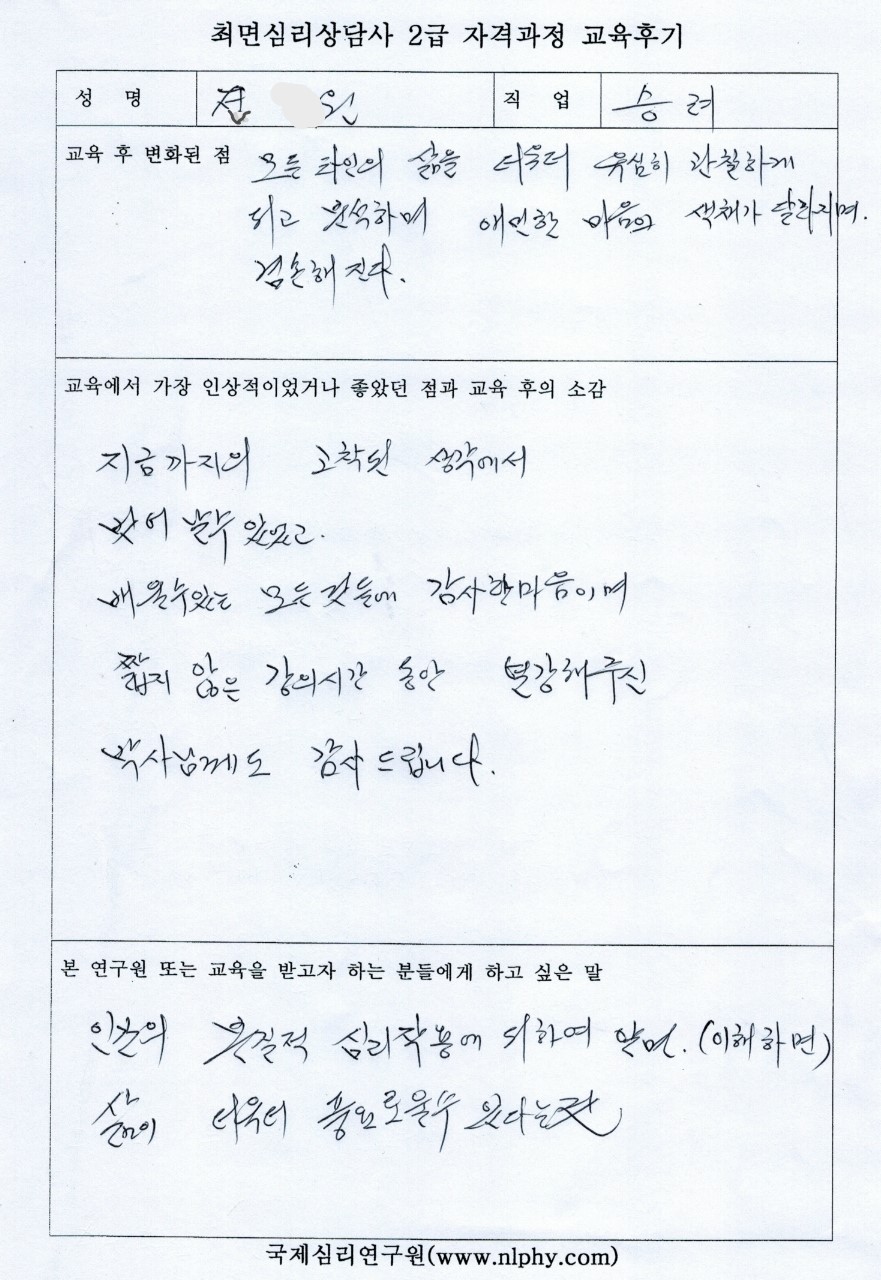 최면심리상담사 2급 자격과정 교육후기
성 명 전 원 직 업 승려
교육 후 변화된 점 모든 타인의 삶을 더욱더 유심히 관찰하게
되고 분석하며 애민한 마음의 색채가 달라지며.
겸손해 진다.
교육에서 가장 인상적이었거나 좋았던 점과 교육 후의 소감
지금까지의 고착된 생각에서
벗어 날수 있었고.
배울수있는 모든것들에 감사한마음이며
짧지 않은 강의시간 동안 열강해주신
박사님께도 감사 드립니다.
본 연구원 또는 교육을 받고자 하는 분들에게 하고 싶은 말
인간의 본질적 심리작용에 의하여 알면. (이해하면)
삶이 더욱더 풍요로울수 있다는것
국제심리연구원(www.nlphy.com)